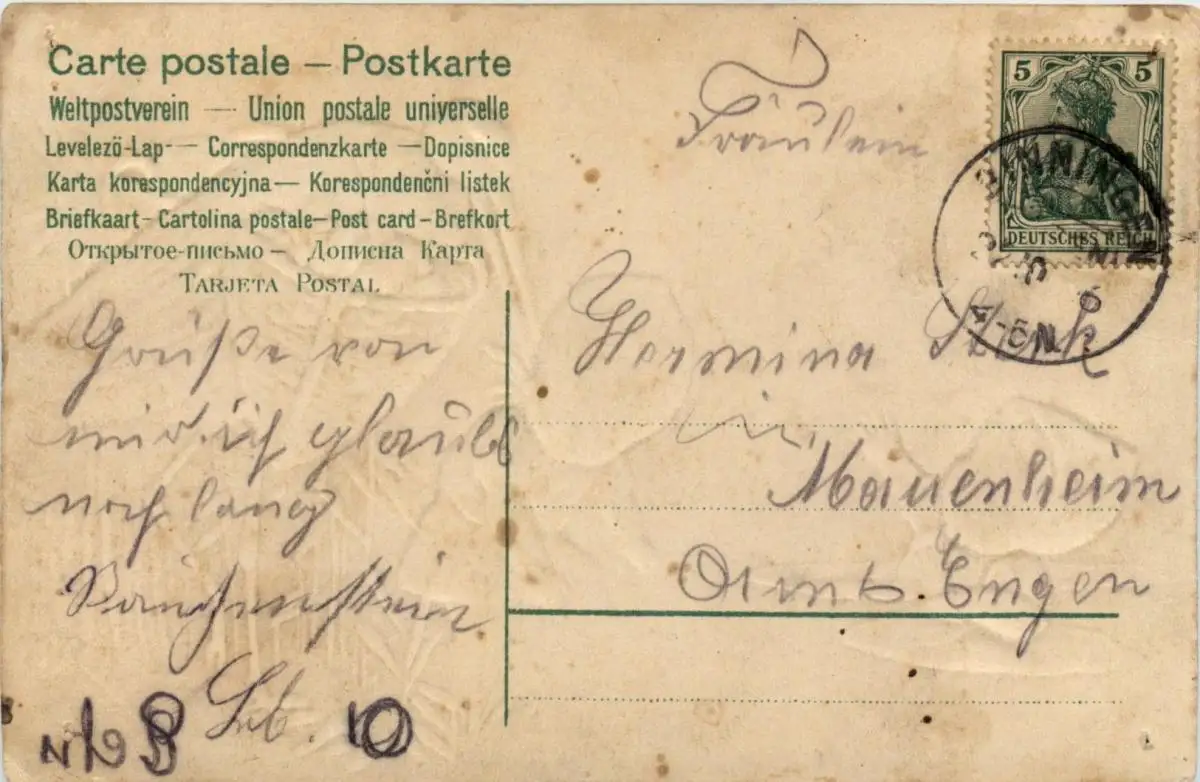 Carte postale – Postkarte
Weltpostverein — Union postale universelle
Levelező-Lap- — Correspondenzkarte — Dopisnice
Karta korespondencyjna — Korespondenčni listek
Briefkaart – Cartolina postale – Post card – Brefkort
Открытое-письмо – Дописна Карта
Tarjeta Postal
5 5
DEUTSCHES REICH
4-5N
Fräulein
Hermina
in
Mauenheim
Amts. Engen
Grüße von
mir ich glaub
noch lang
10